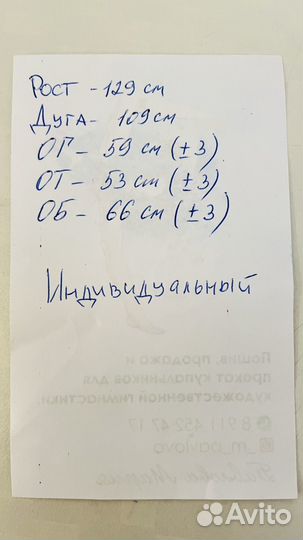 Рост - 129 см
Дуга - 109 см
ОГ - 59 см (±3)
ОТ - 53 см (±3)
ОБ - 66 см (±3)
Индивидуальный
Пошив, продажа и
прокат купальников для
художественной гимнастики.
8 911 452 47 17
_m_pavlova
Павлова Мария
Avito